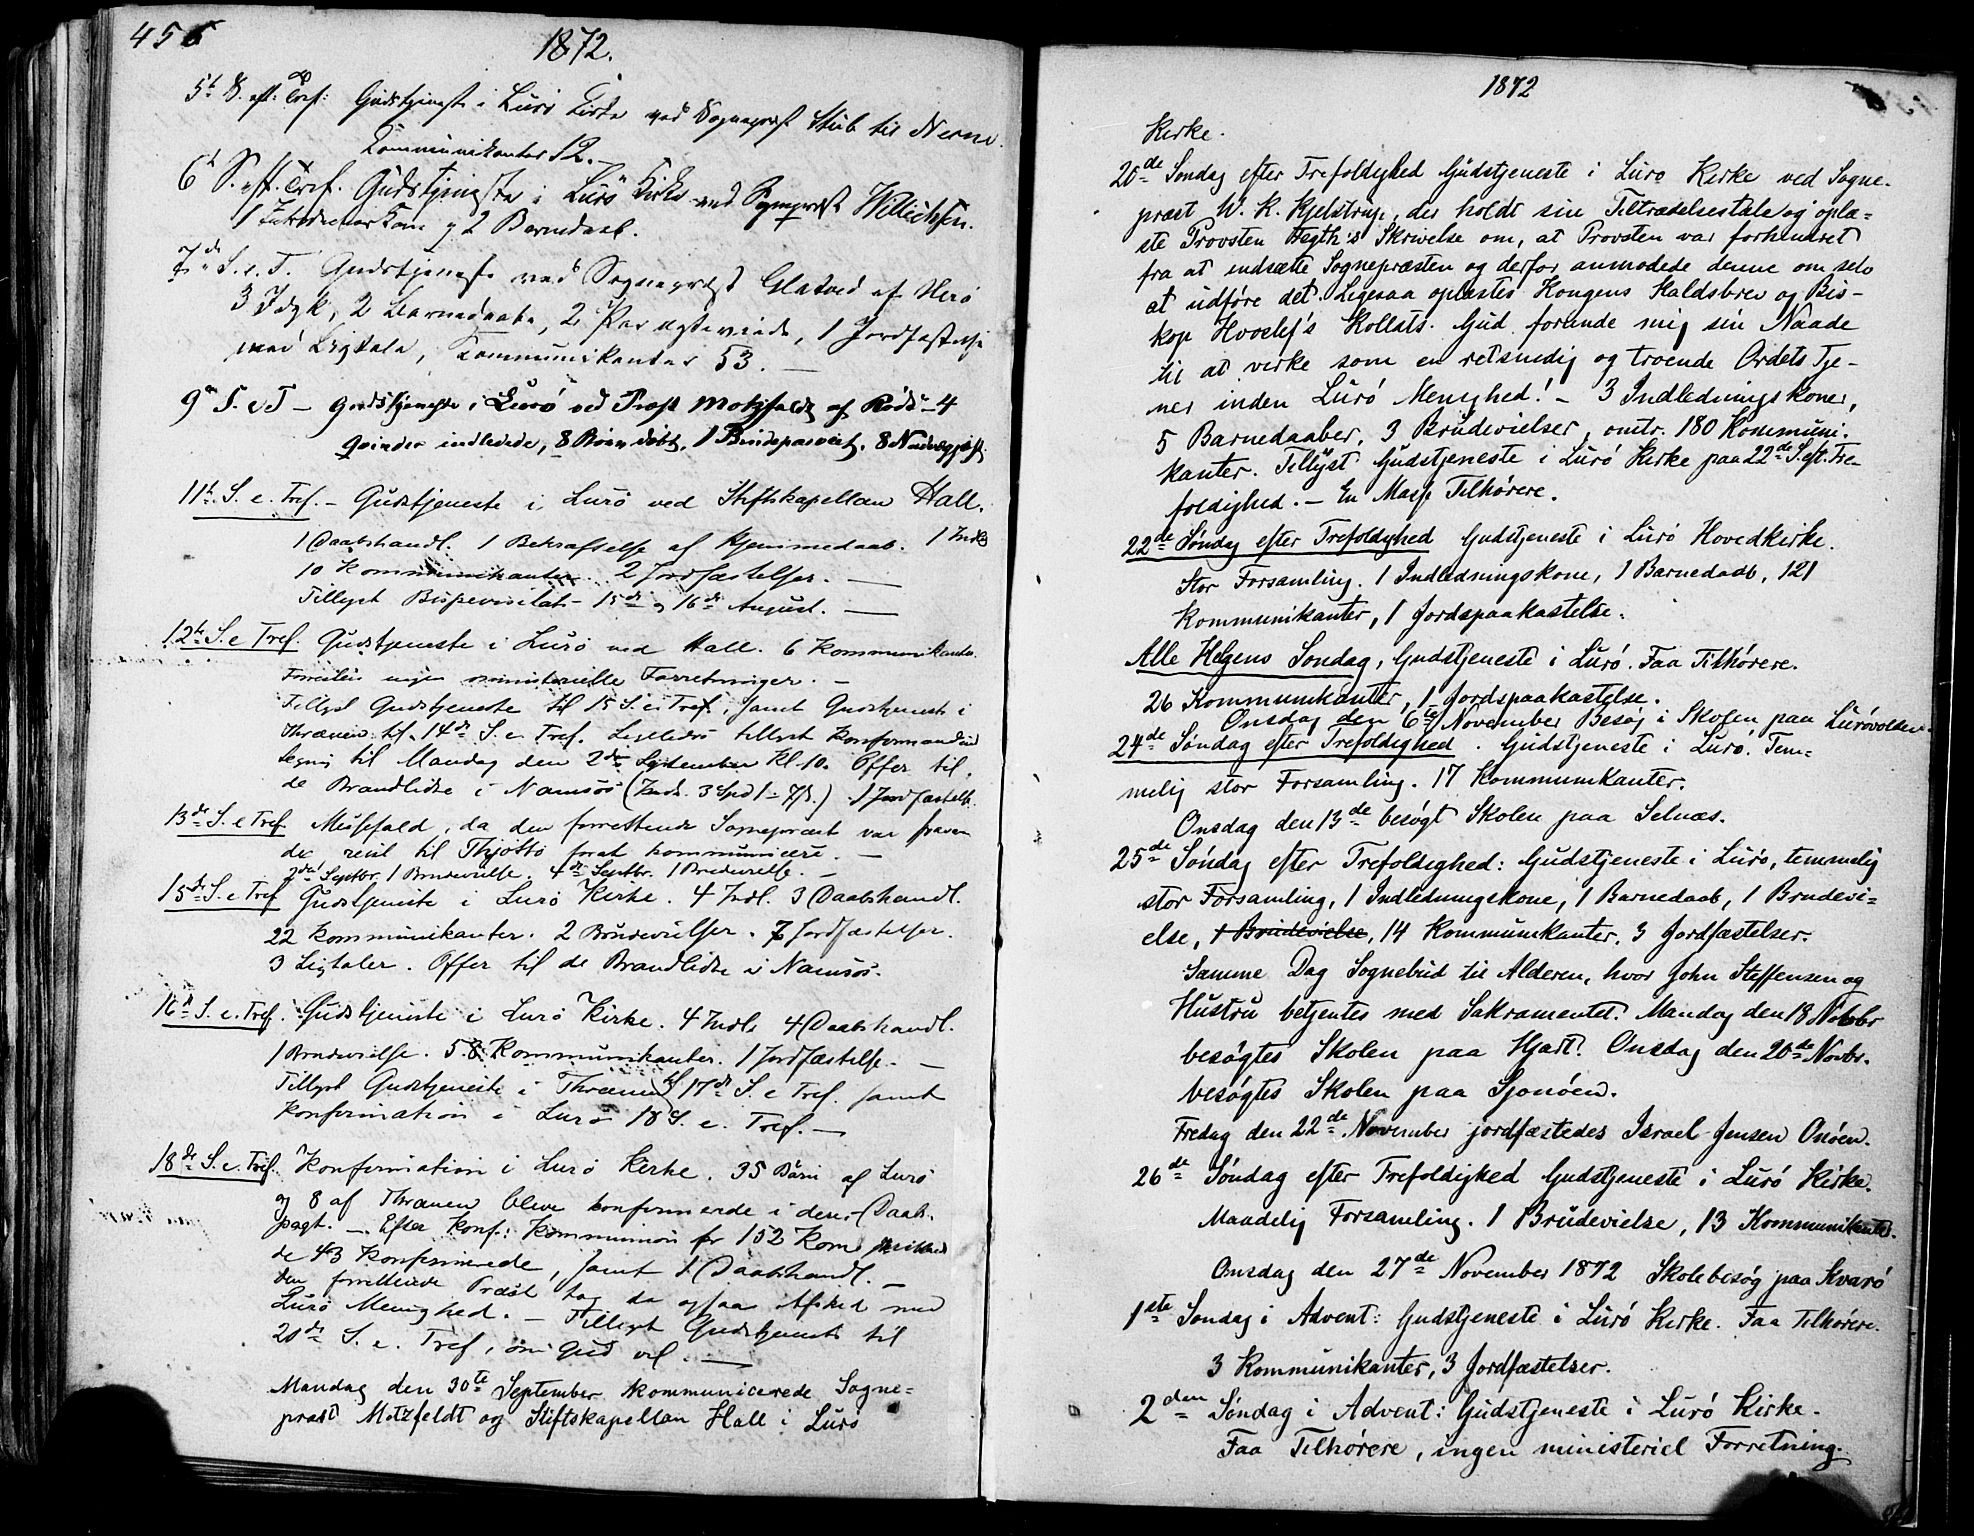 456
1872.
5t S. eft: Tref: Gudstjeneste i Lurö Kirke ved Sognepræst Stub til Nesne.
Communikanter 12.
6t S. eft. Tref. Gudstjeneste i Lurö Kirke ved Sognepræst
1 Kone og 2 Barnedaab.
7de S. e. T. Gudstjeneste ved Sognepræst Glatved af Herö
3 Indgk, 2 Barnedaabe, 2 Par ægteviede, 1 Jordfæstelse
med Ligtale, Communikanter 53. —
9de S. e T — Gudstjeneste i Lurö ved Præst Motzfeldt af Rödö — 4
Qvinder indledede, 8 Börn döbt, 1 Brudepar viet, 8
11te S. e. Tref. — Gudstjeneste i Lurö ved Stiftskapellan Hall.
1 Daabshandl. 1 Bekræftelse af Hjemmedaab. 1 Indl
10 Kommunikanter. 2 Jordfæstelser. —
Tillyst Bispevisitats 15de og 16de August. —
12te S. e Tref. Gudstjeneste i Lurö ved Hall. 6 Kommunikanter.
Forövrigt ingen ministerielle Forretninger. —
Tillyst Gudstjeneste til 15 S. e. Tref., samt Gudstjeneste i
Thrænen til 14de S. e. Tref. Ligeledes tillyst Konfirmand
til Mandag den 2den September Kl. 10. Offer til
de Brandlidte i Namsos (Indk. 3 Spd 1 — 7 s.) 1 Jordfæstelse
13de S. e Tref. Messefald, da den forrettende Sognepræst var fraværen
de reist til Thjöttö forat kommunicere. —
2den Septbr. 1 Brudevielse. 4de Septbr. 1 Brudevielse. —
15de S. e Tref Gudstjeneste i Lurö Kirke. 4 Indl. 3 Daabshandl.
22 Kommunikanter. 2 Brudevielser. 7 Jordfæstelser.
3 Ligtaler. Offer til de Brandlidte i Namsos.
16de S. e. Tref. Gudstjeneste i Lurö Kirke. 4 Indl. 4 Daabshandl.
1 Brudevielse. 58 Kommunikanter. 1 Jordfæstelse. —
Tillyst Gudstjeneste i Thrænen til 17de S. e Tref. samt
Konfirmation i Lurö 18 S. e. Tref. —
18de S. e. Tref. Konfirmation i Lurö Kirke. 35 Börn af Lurö
og 8 af Thrænen bleve konfirmerede i deres Daabs-
pagt. — Efter Konf.: Kommunion for 152 Kom
de 43 Konfirmerede, samt 1 Daabshandl. —
Den forrettende Præst tog da ogsaa Afsked med
Lurö Menighed. — Tillyst Gudstjeneste til
20de S. e. Tref, om Gud vil. —
Mandag den 30te September kommunicerede Sogne=
præst Motzfeldt og Stiftskapellan Hall i Lurö
1872
Kirke.
20de Söndag efter Trefoldighed Gudstjeneste i Lurö Kirke ved Sogne-
præst W. K. Kjelstrup, der holdt sin Tiltrædelsestale og oplæ=
ste Provsten Hegth's Skrivelse om, at Provsten var forhindret
fra at indsætte Sognepræsten og derfor anmodede denne om selv
at udföre det. Ligesaa oplæstes Kongens Kaldsbrev og Bis-
kop Hvoslef's Kollats. Gud forunde mig sin Naade
til at virke som en retsindig og troende Ordets Tje-
ner inden Lurö Menighed! — 3 Indledningskoner,
5 Barnedaaber, 3 Brudevielser, omtr. 180 Kommuni-
kanter. Tillyst Gudstjeneste i Lurö Kirke paa 22de S. eft. Tre-
foldighed. — En Masse Tilhörere.
22de Söndag efter Trefoldighed Gudstjeneste i Lurö Hovedkirke.
Stor Forsamling. 1 Indledningskone, 1 Barnedaab, 121
Kommunikanter, 1 Jordspaakastelse.
Alle Helgens Söndag, Gudstjeneste i Lurö. Faa Tilhörere.
26 Kommunikanter, 1 Jordspaakastelse.
Onsdag den 6te November Besög i Skolen paa Lurövolden.
24de Söndag efter Trefoldighed. Gudstjeneste i Lurö. Tem-
melig stor Forsamling. 17 Kommunikanter.
Onsdag den 13de besögt Skolen paa Selnæs.
25de Söndag efter Trefoldighed: Gudstjeneste i Lurö, temmelig
stor Forsamling, 1 Indledningskone, 1 Barnedaab, 1 Brudevi=
else, 1 Brudevielse, 14 Kommunikanter, 3 Jordfæstelser.
Samme Dag Sognebud til Alderen, hvor John Steffensen og
Hustru betjentes med Sakramentet. Mandag den 18 Novbr
besögtes Skolen paa Hjart. Onsdag den 20de Novbr.
besögtes Skolen paa Sjonöen.
Fredag den 22de November jordfæstedes Israel Jensen Onöen.
26de Söndag efter Trefoldighed Gudstjeneste i Lurö Kirke.
Maadelig Forsamling. 1 Brudevielse, 13 Kommunikanter.
Onsdag den 27de November 1872 Skolebesög paa Kvarö
1ste Söndag i Advent: Gudstjeneste i Lurö Kirke. Faa Tilhörere.
3 Kommunikanter, 3 Jordfæstelser.
2den Söndag i Advent: Gudstjeneste i Lurö Kirke.
Faa Tilhörere, ingen ministeriel Forretning.